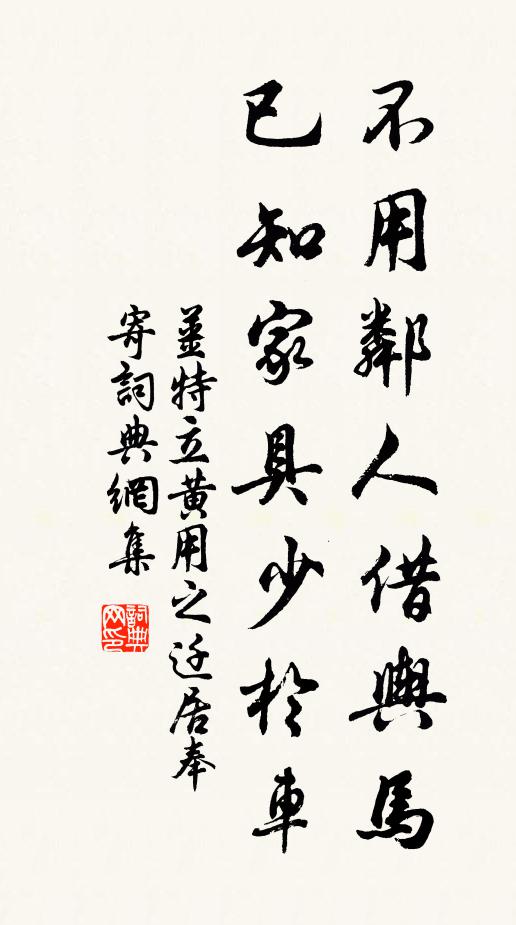 不用鄰人借輿馬
已知家具少於車
姜特立黄用之迁居奉
寄詞典網集
詞典网印